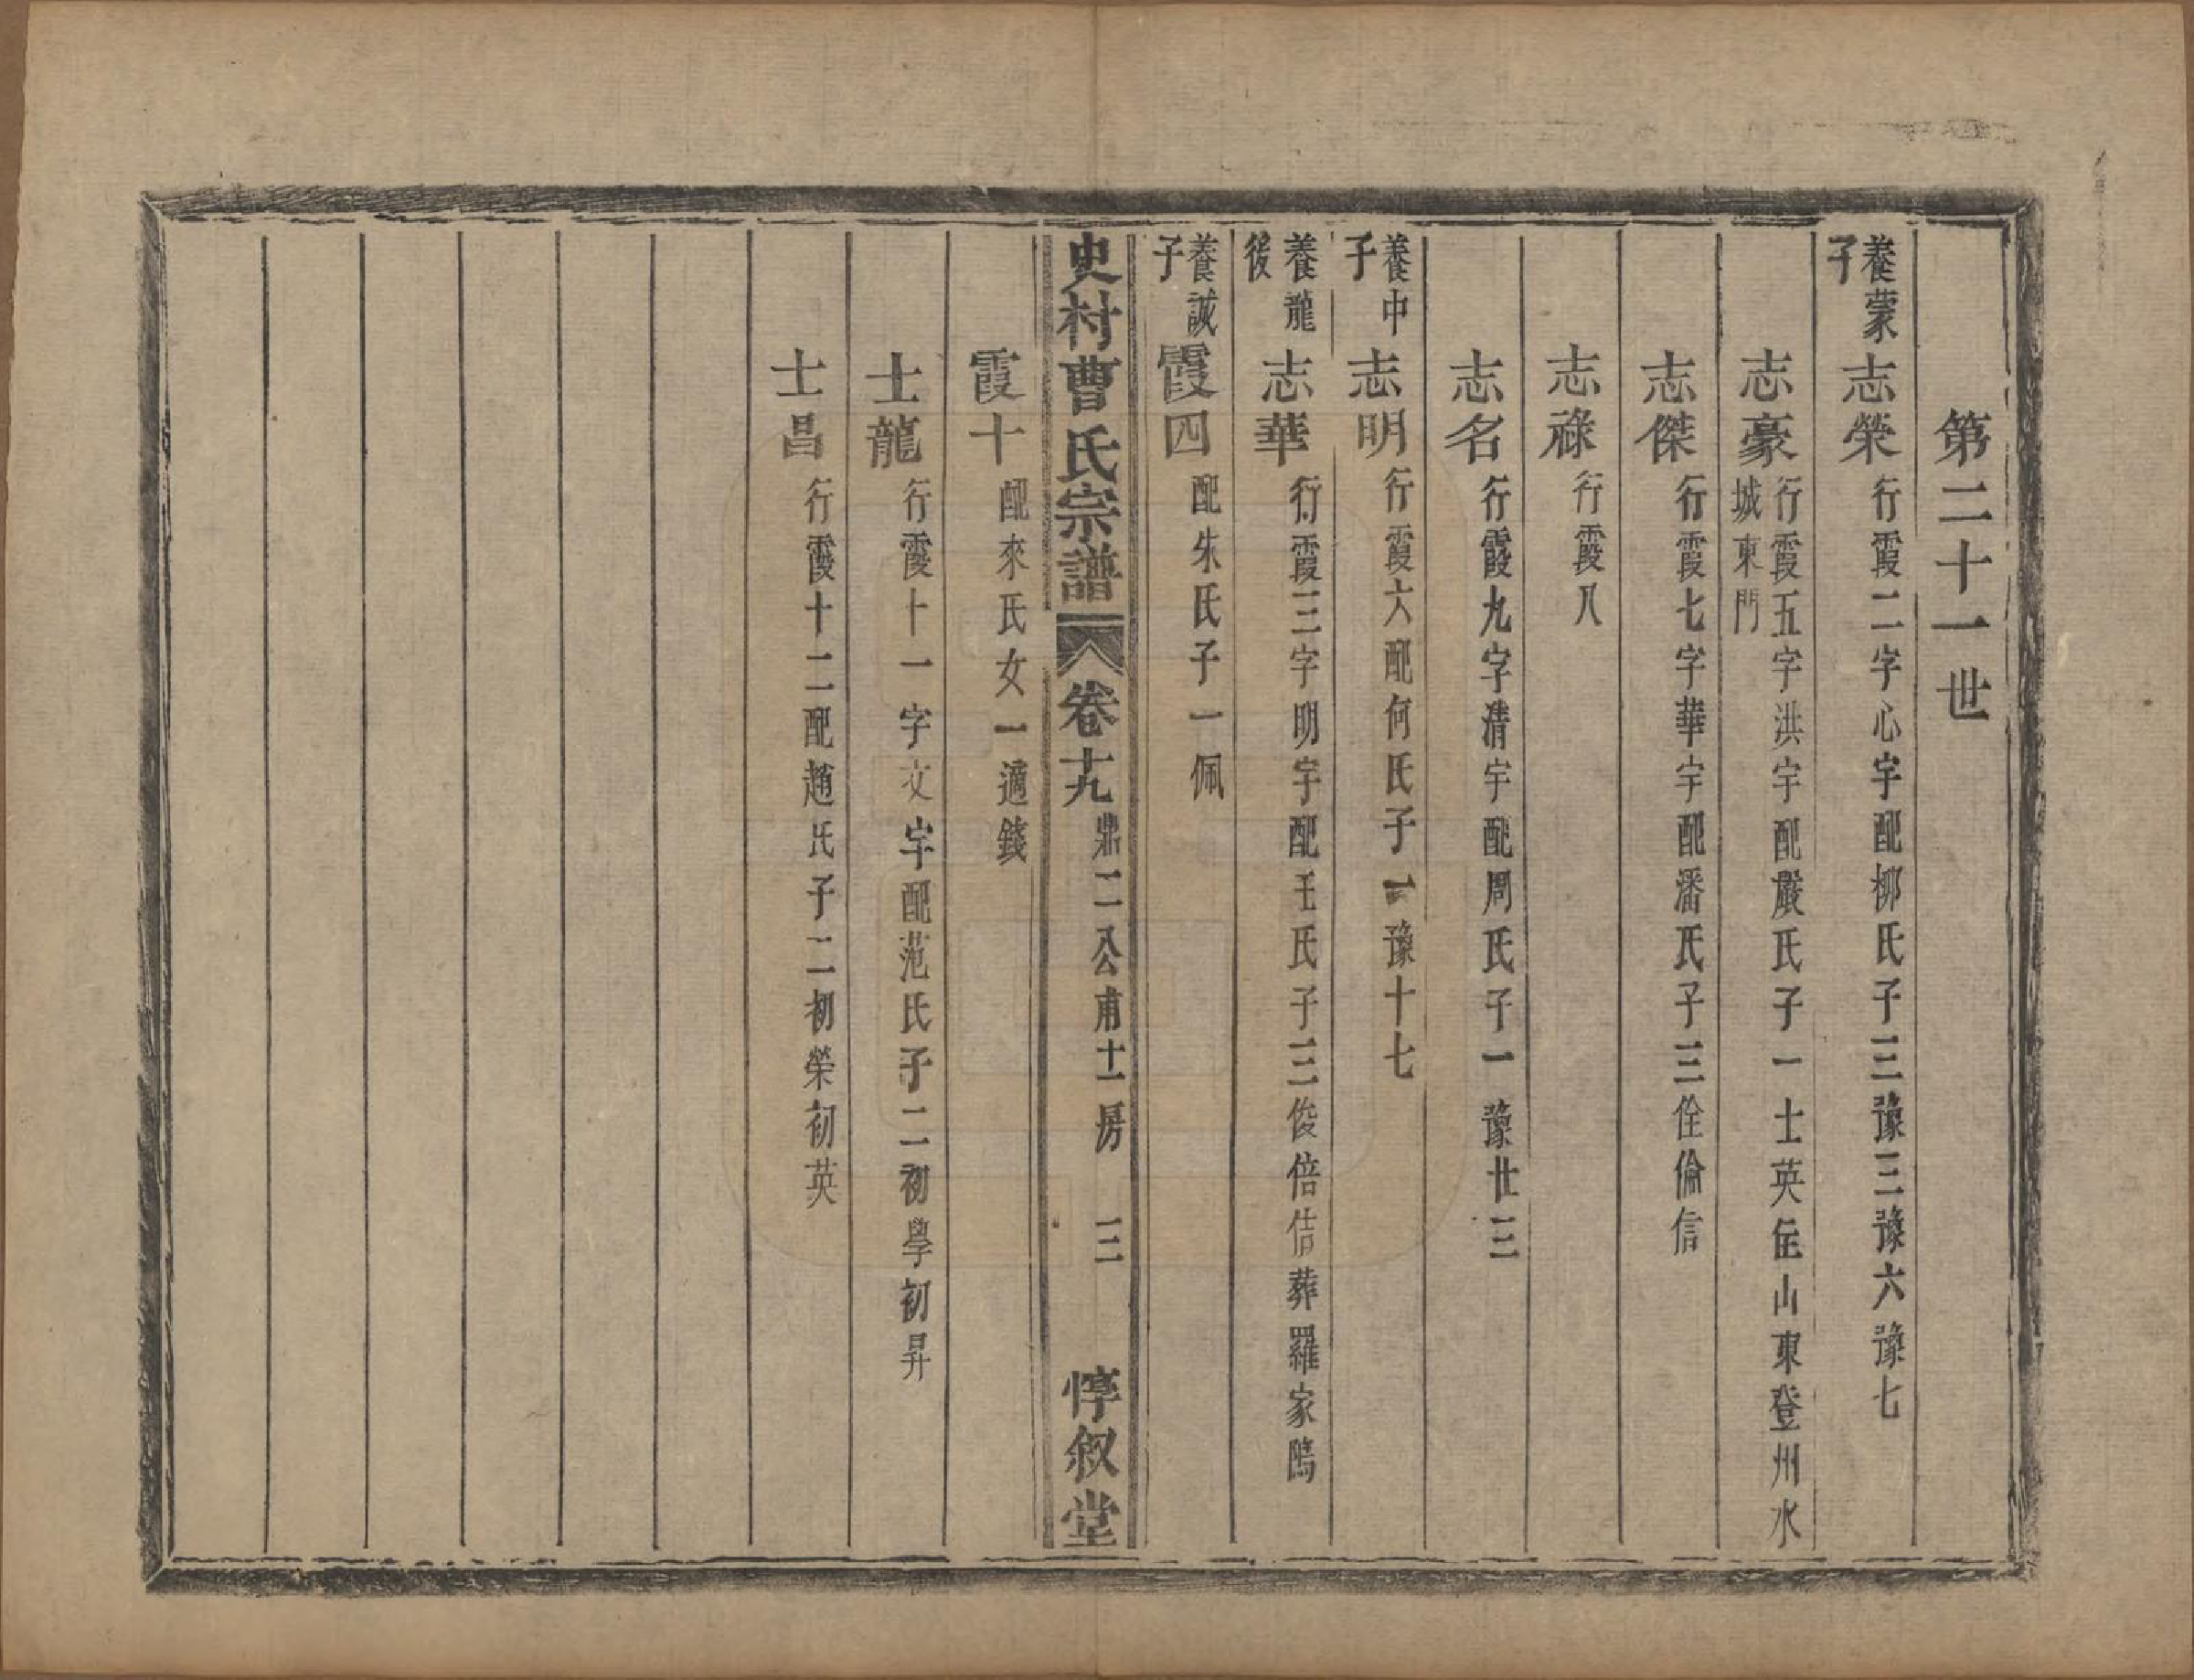 第二十一世
養蒙子 志榮 行霞二字心宇配柳氏子三豫三豫六豫七
志豪 行霞五字洪宇配嚴氏子一士英住山東登州水城東門
志傑 行霞七字華宇配潘氏子三佺倫信
志祿 行霞八
志名 行霞九字清宇配周氏子一豫廿三
養中子 志明 行霞六配何氏子一豫十七
養龍後 志華 行霞三字明宇配王氏子三俊倍佶葬羅家隝
養誠子 霞四 配朱氏子一佩
史村曹氏宗譜 卷十九 鼎二公甫十一房 三 惇叙堂
霞十 配來氏女一適錢
士龍 行霞十一字文宇配范氏子二初學初昇
士昌 行霞十二配趙氏子二初榮初英